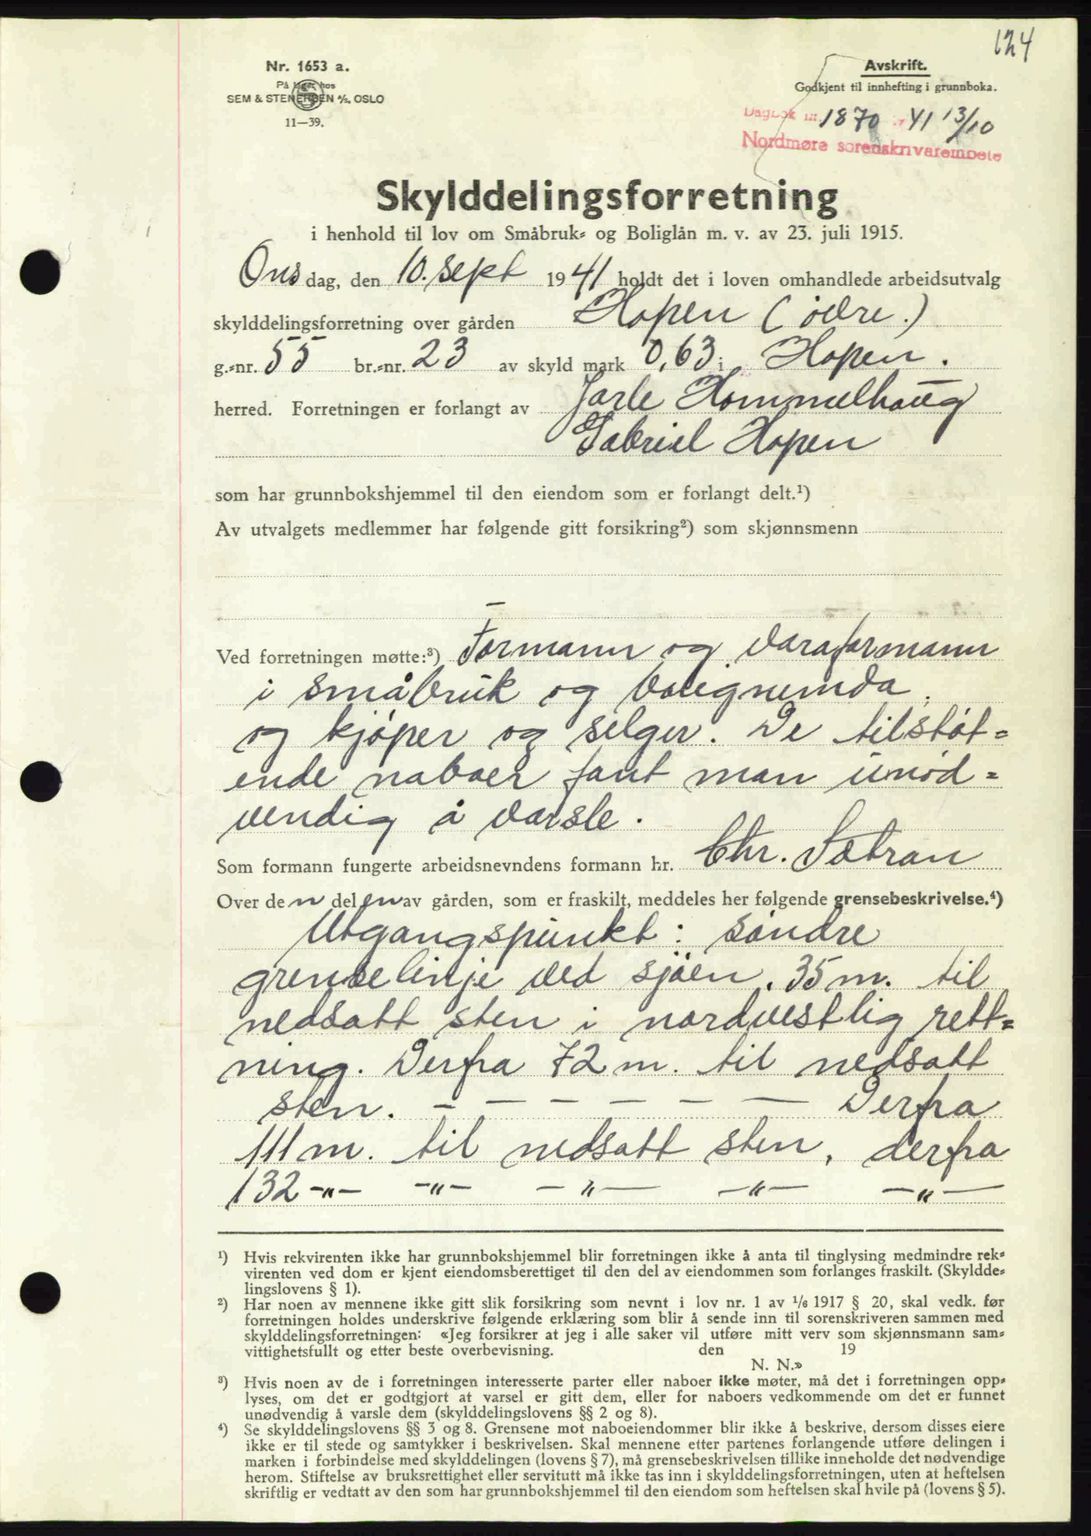 124
Nr. 1653 a.
På lager hos
SEM & STENERSEN A/S, OSLO
11—39.
Avskrift.
Godkjent til innhefting i grunnboka.
Dagbok nr. 1870 41 13/10
Nordmøre sorenskrivarembete
Skylddelingsforretning
i henhold til lov om Småbruk- og Boliglån m. v. av 23. juli 1915.
Onsdag, den 10. sept 1941 holdt det i loven omhandlede arbeidsutvalg
skylddelingsforretning over gården Hopen (öire.)
g.-nr. 55 br.-nr. 23 av skyld mark 0,63 i Hopen.
herred. Forretningen er forlangt av Jarle Hommelhaug
Gabriel Hopen
som har grunnbokshjemmel til den eiendom som er forlangt delt.¹)
Av utvalgets medlemmer har følgende gitt forsikring²) som skjønnsmenn
Ved forretningen møtte:³) Formann og varaformann
i småbruk og bolignemda,
og kjøper og selger. De tilstøt-
ende naboer fant man unød-
vendig å varsle.
Som formann fungerte arbeidsnevndens formann hr. Chr. Sætran
Over den delen av gården, som er fraskilt, meddeles her følgende grensebeskrivelse.⁴)
Utgangspunkt: söndre
grenselinje ved sjöen. 35 m. til
nedsatt sten i nordvestlig rett-
ning. Derfra 72 m. til nedsatt
sten. — — — — — — Derfra
111 m. til nedsatt sten, derfra
132 -"- -"- -"- -"- -"-
¹) Hvis rekvirenten ikke har grunnbokshjemmel blir forretningen ikke å anta til tinglysing medmindre rek-
virenten ved dom er kjent eiendomsberettiget til den del av eiendommen som forlanges fraskilt. (Skyldde-
lingslovens § 1).
²) Har noen av mennene ikke gitt slik forsikring som nevnt i lov nr. 1 av 1/6 1917 § 20, skal vedk. før
forretningen holdes underskrive følgende erklæring som blir å sende inn til sorenskriveren sammen med
skylddelingsforretningen: «Jeg forsikrer at jeg i alle saker vil utføre mitt verv som skjønnsmann sam-
vittighetsfullt og etter beste overbevisning. den 19
N. N.»
³) Hvis noen av de i forretningen interesserte parter eller naboer ikke møter, må det i forretningen opp-
lyses, om det er godtgjort at varsel er gitt dem, eller for naboers vedkommende om det er funnet
unødvendig å varsle dem (skylddelingslovens §§ 2 og 8).
⁴) Se skylddelingslovens §§ 3 og 8. Grensene mot naboeiendommer blir ikke å beskrive, dersom disses eiere
ikke er til stede og samtykker i beskrivelsen. Skal mennene etter partenes forlangende utføre delingen i
marken i forbindelse med skylddelingen (lovens § 7), må grensebeskrivelsen tillike inneholde det nødvendige
herom. Stiftelse av bruksrettighet eller servitutt må ikke tas inn i skylddelingsforretningen, uten at heftelsen
skriftlig er vedtatt av den som har grunnbokshjemmel til den eiendom som heftelsen skal hvile på (lovens § 5).